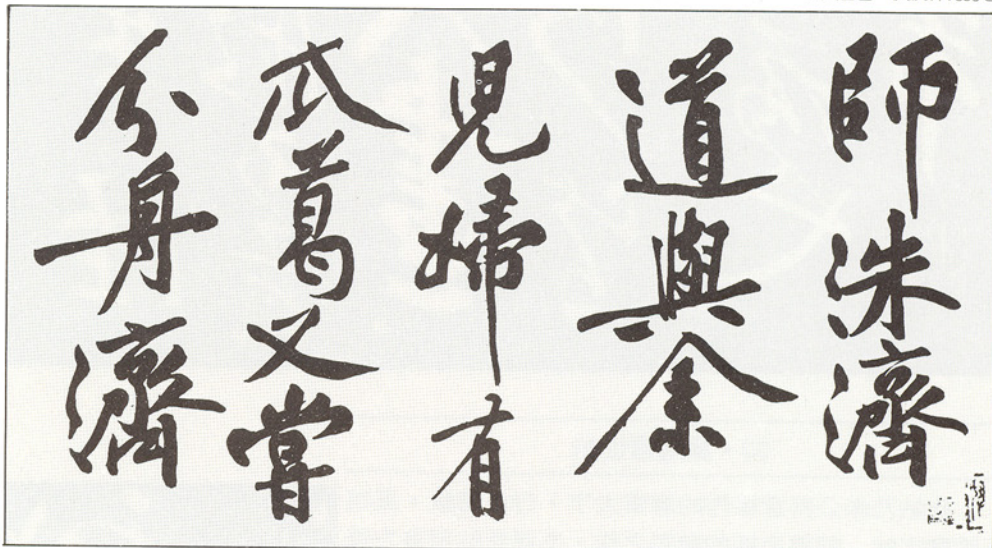 師洙濟
道與余
兒婦有
瓜葛又嘗
分舟濟